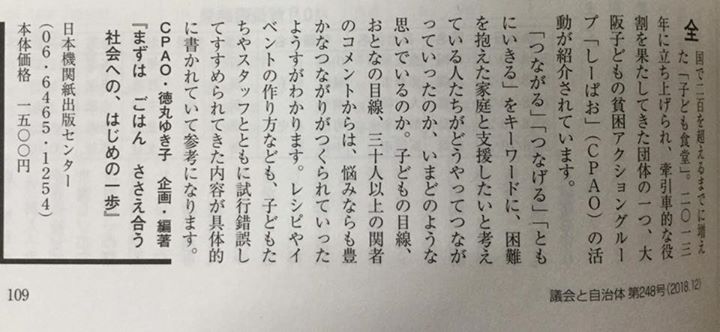 全国で二百を超えるまでに増え
た「子ども食堂」。二〇一三
年に立ち上げられ、牽引車的な役
割を果たしてきた団体の一つ、大
阪子どもの貧困アクショングルー
プ「しーぱお」（ＣＰＡＯ）の活
動が紹介されています。
「つながる」「つなげる」「とも
にいきる」をキーワードに、困難
を抱えた家庭と支援したいと考え
ている人たちがどうやってつなが
っていったのか、いまどのような
思いでいるのか。子どもの目線、
おとなの目線、三十人以上の関者
のコメントからは、悩みならも豊
かなつながりがつくられていった
ようすがわかります。レシピやイ
ベントの作り方なども、子どもた
ちやスタッフとともに試行錯誤し
てすすめられてきた内容が具体的
に書かれていて参考になります。
ＣＰＡＯ・徳丸ゆき子　企画・編著
『まずは　ごはん　ささえ合う
社会への、はじめの一歩』
日本機関紙出版センター
（06・6465・1254）
本体価格　一五〇〇円
109
議会と自治体 第248号(2018.12)